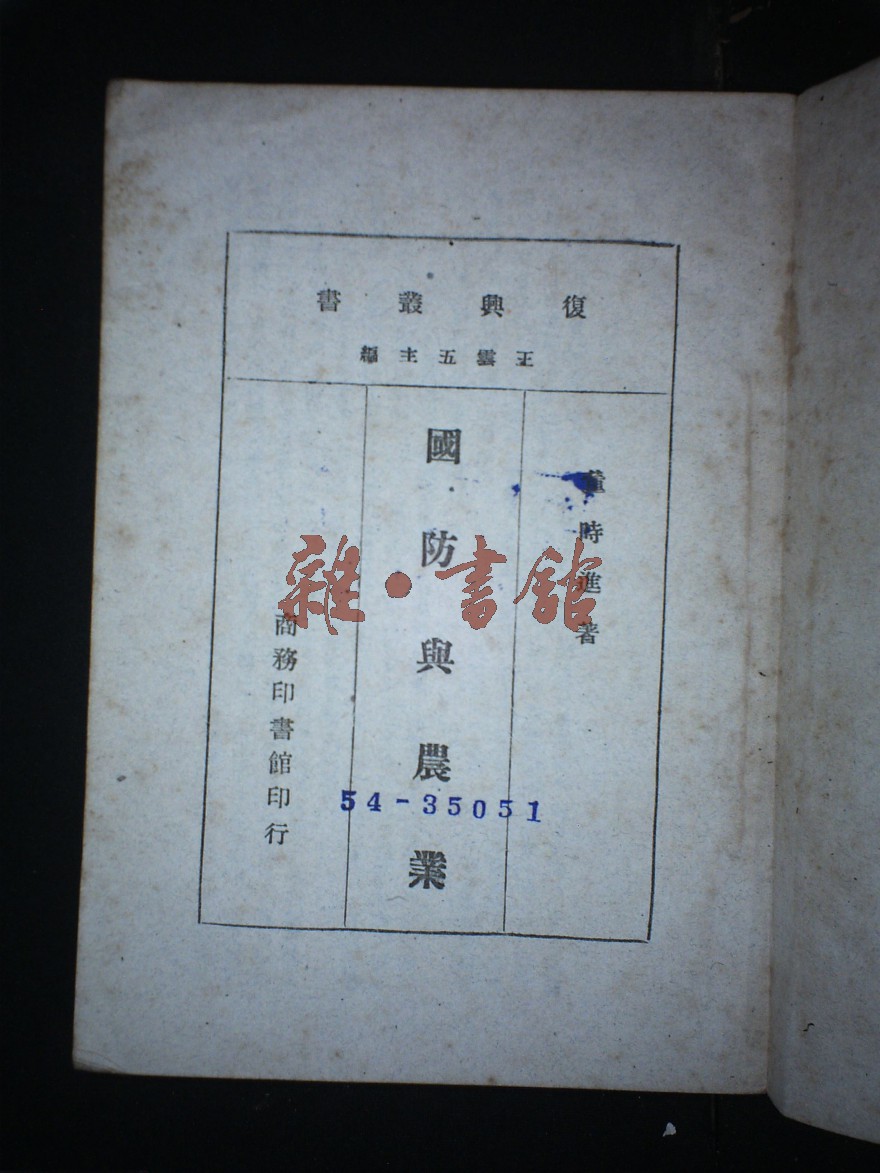 復興叢書
王雲五主編
董時進著
國防與農業
商務印書館印行
54-35051
雜·書館